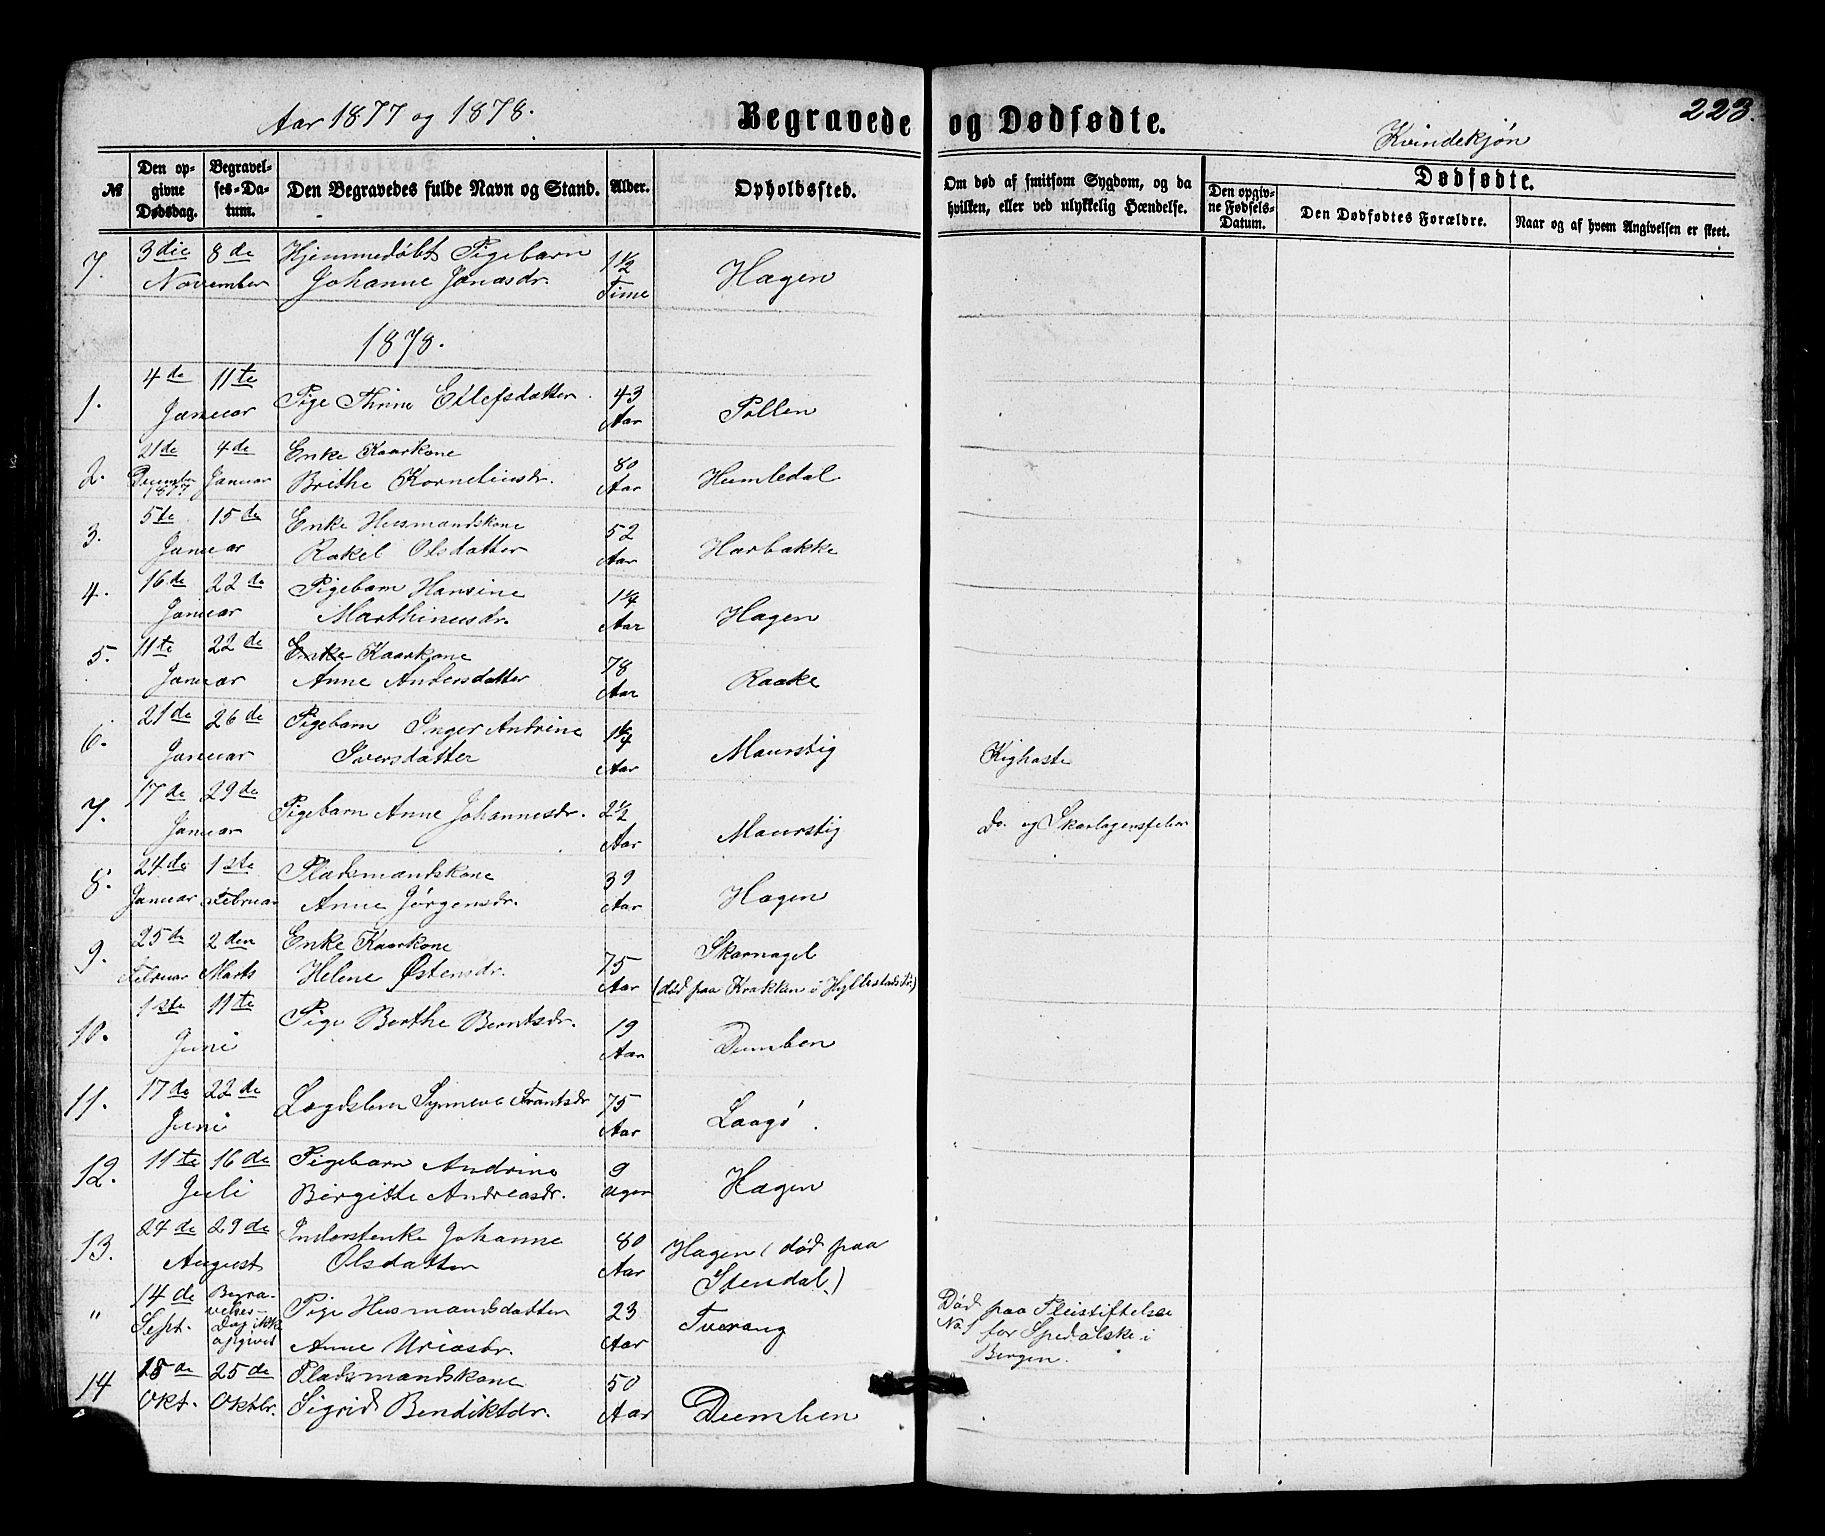 Aar 1877 og 1878.
Begravede og Dødfødte.
Kvindekjøn
223.
№
Den opgivne Dødsdag.
Begravelses-Datum.
Den Begravedes fulde Navn og Stand.
Alder.
Opholdssted.
Om død af smitsom Sygdom, og da hvilken, eller ved ulykkelig Hændelse.
Dødfødte.
Den opgivne Fødsels-Datum.
Den Dødfødtes Forældre.
Naar og af hvem Angivelsen er skeet.
7. 3die 8de Hjemmedøbt Pigebarn 1½
November Johanne Jonasdr. Time Hagen
1878.
1. 4de 11te Pige Thrine Ellefsdatter. 43
Januar Aar Pollen
2. 21de 4de Enke Kaarkone 80
December 1877 Januar Brithe Korneliusdr. Aar Humledal
3. 5te 15de Enke Husmandskone 52
Januar Rakel Olsdatter Aar Harbakke
4. 16de 22de Pigebarn Hansine 1¼
Januar Marthinusdr. Aar Hagen
5. 11te 22de Enke Kaarkone 78
Januar Anne Andersdatter Aar Raake
6. 21de 26de Pigebarn Inger Andrine 1¼
Januar Iversdatter Aar Maurstig Kighoste
7. 17de 29de Pigebarn Anne Johannesdr. 2½
Januar Aar Maurstig Do. og Skarlagensfeber
8. 24de 1ste Pladsmandskone 39
Januar Februar Anne Jørgensdr. Aar Hagen
9. 25de 2den Enke Kaarkone 75 Skornagel
Februar Marts Helene Østensdr. Aar (død paa Krakken i Hyllestad)
10. 1ste 11te Pige Berthe Berntsdr. 19
Juni Aar Dumben
11. 17de 22de Lægdslem Synneve Frantsdr 75
Juni Aar Laagø.
12. 11te 16de Pigebarn Andrine 9
Juli Birgitte Andreasdr. Uger Hagen
13. 24de 29de Inderstenke Johanne 80 Hagen (død paa
August Olsdatter Aar Stendal)
" 14de Sept. Begravelses-Dag ikke opgivet Pige Husmandsdatter 23
Anne Uriasdr. Aar Tverang
Død paa Pleistiftelse
No. 1 for Spedalske i
Bergen.
14 18de 25de Pladsmandskone 50
Okt. Oktbr. Sigrid Bendiktdr. Aar Dumben